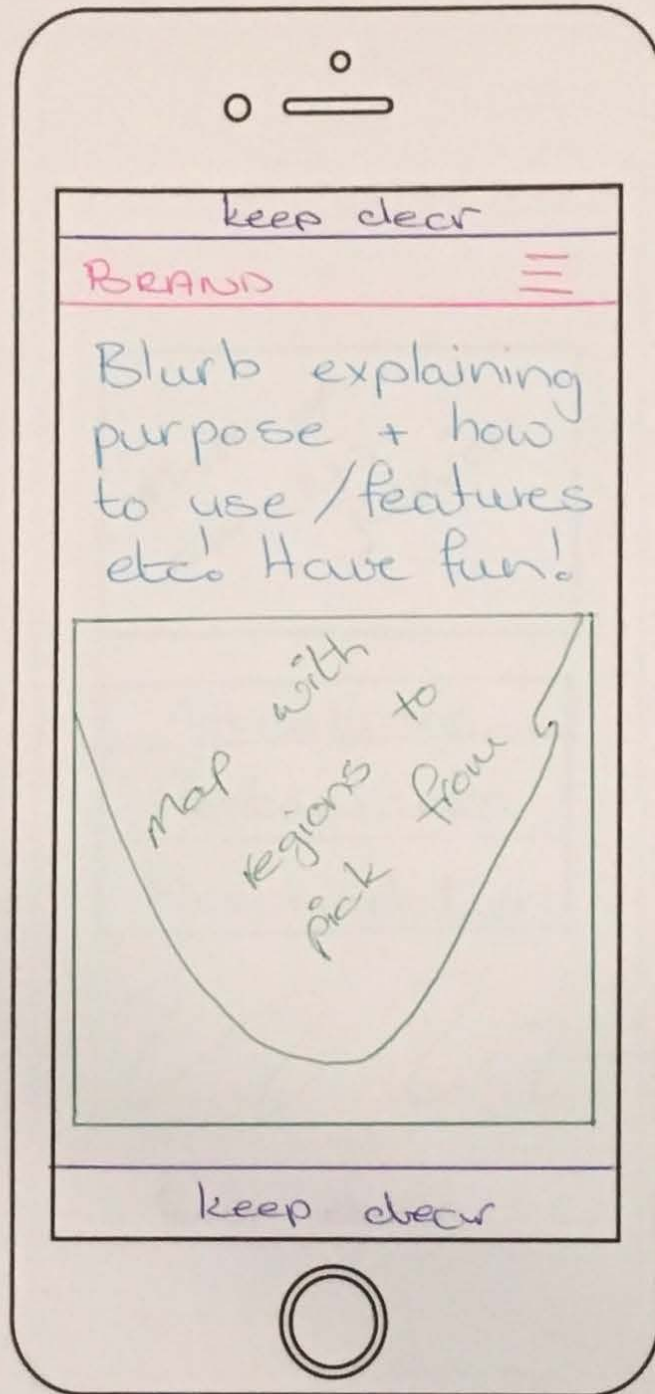 keep clear
BRAND
Blurb explaining
purpose + how
to use / features
etc! Have fun!
Map with
regions to
pick from
keep clear